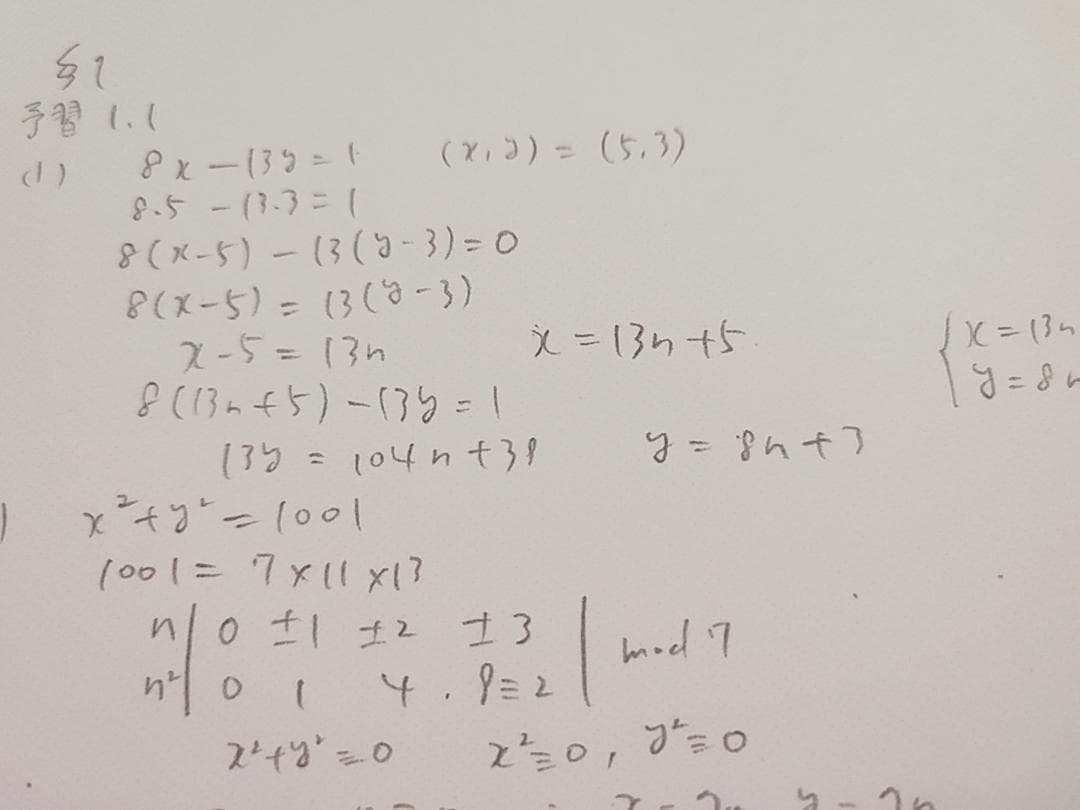 §1
予習 1.1
(1) 8x-13y=1 (x,y)=(5,3)
8·5-13·3=1
8(x-5)-13(y-3)=0
8(x-5)=13(y-3)
x-5=13n x=13n+5
{x=13n
y=8n
8(13n+5)-13y=1
13y=104n+39 y=8n+3
) x²+y²=1001
1001=7×11×13
n 0 ±1 ±2 ±3 mod 7
n² 0 1 4 9≡2
x²+y²≡0 x²≡0, y²≡0